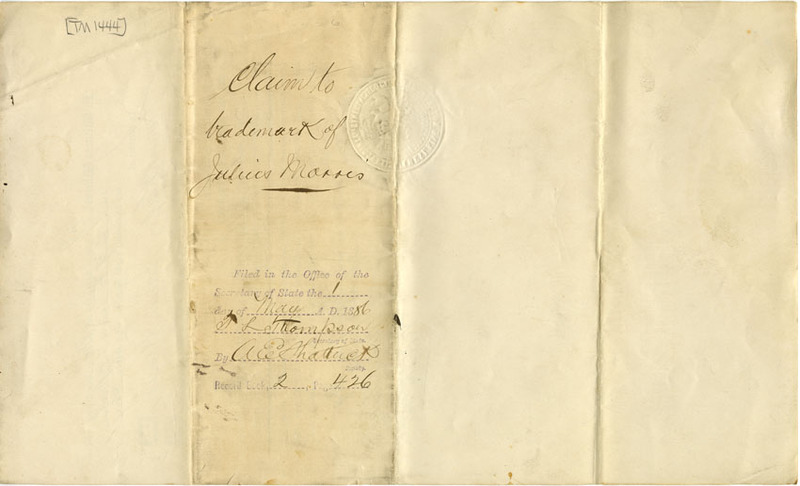 [TM 1444]
Claim to
trademark of
Julius Morris
Filed in the Office of the
Secretary of State the 1
day of May A. D. 1886
T L Thompson
Secretary of State.
By A E Shattuck
Deputy.
Record Book 2 Page 426